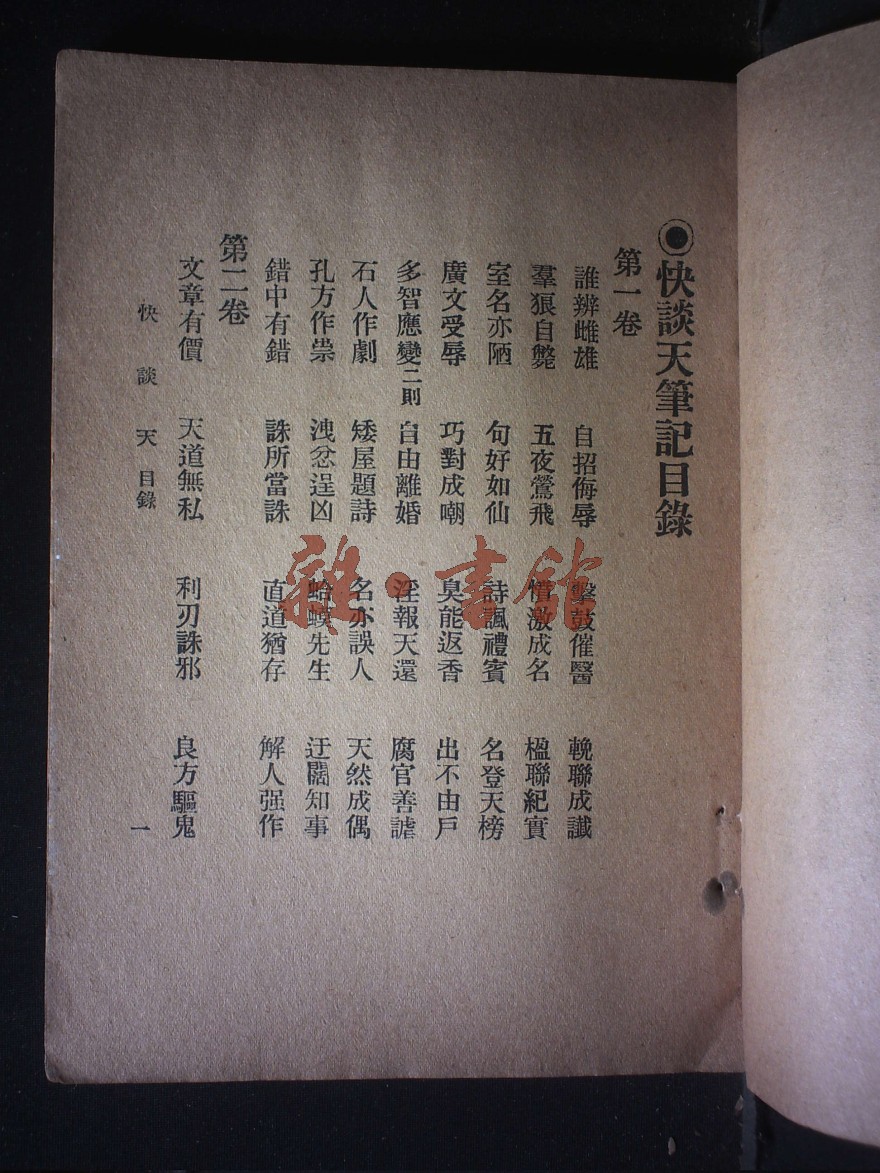 快談天筆記目錄
第一卷
誰辨雌雄 自招侮辱 擊鼓催醫 輓聯成讖
羣狠自斃 五夜鶯飛 憤激成名 楹聯紀實
室名亦陋 句好如仙 詩諷禮賓 名登天榜
廣文受辱 巧對成嘲 臭能返香 出不由戶
多智應變二則 自由離婚 淫報天還 腐官善謔
石人作劇 矮屋題詩 名亦誤人 天然成偶
孔方作祟 洩忿逞凶 蛤蟆先生 迂闊知事
錯中有錯 誅所當誅 直道猶存 解人强作
第二卷
文章有價 天道無私 利刃誅邪 良方驅鬼
快談天 目錄 一
雜·書館